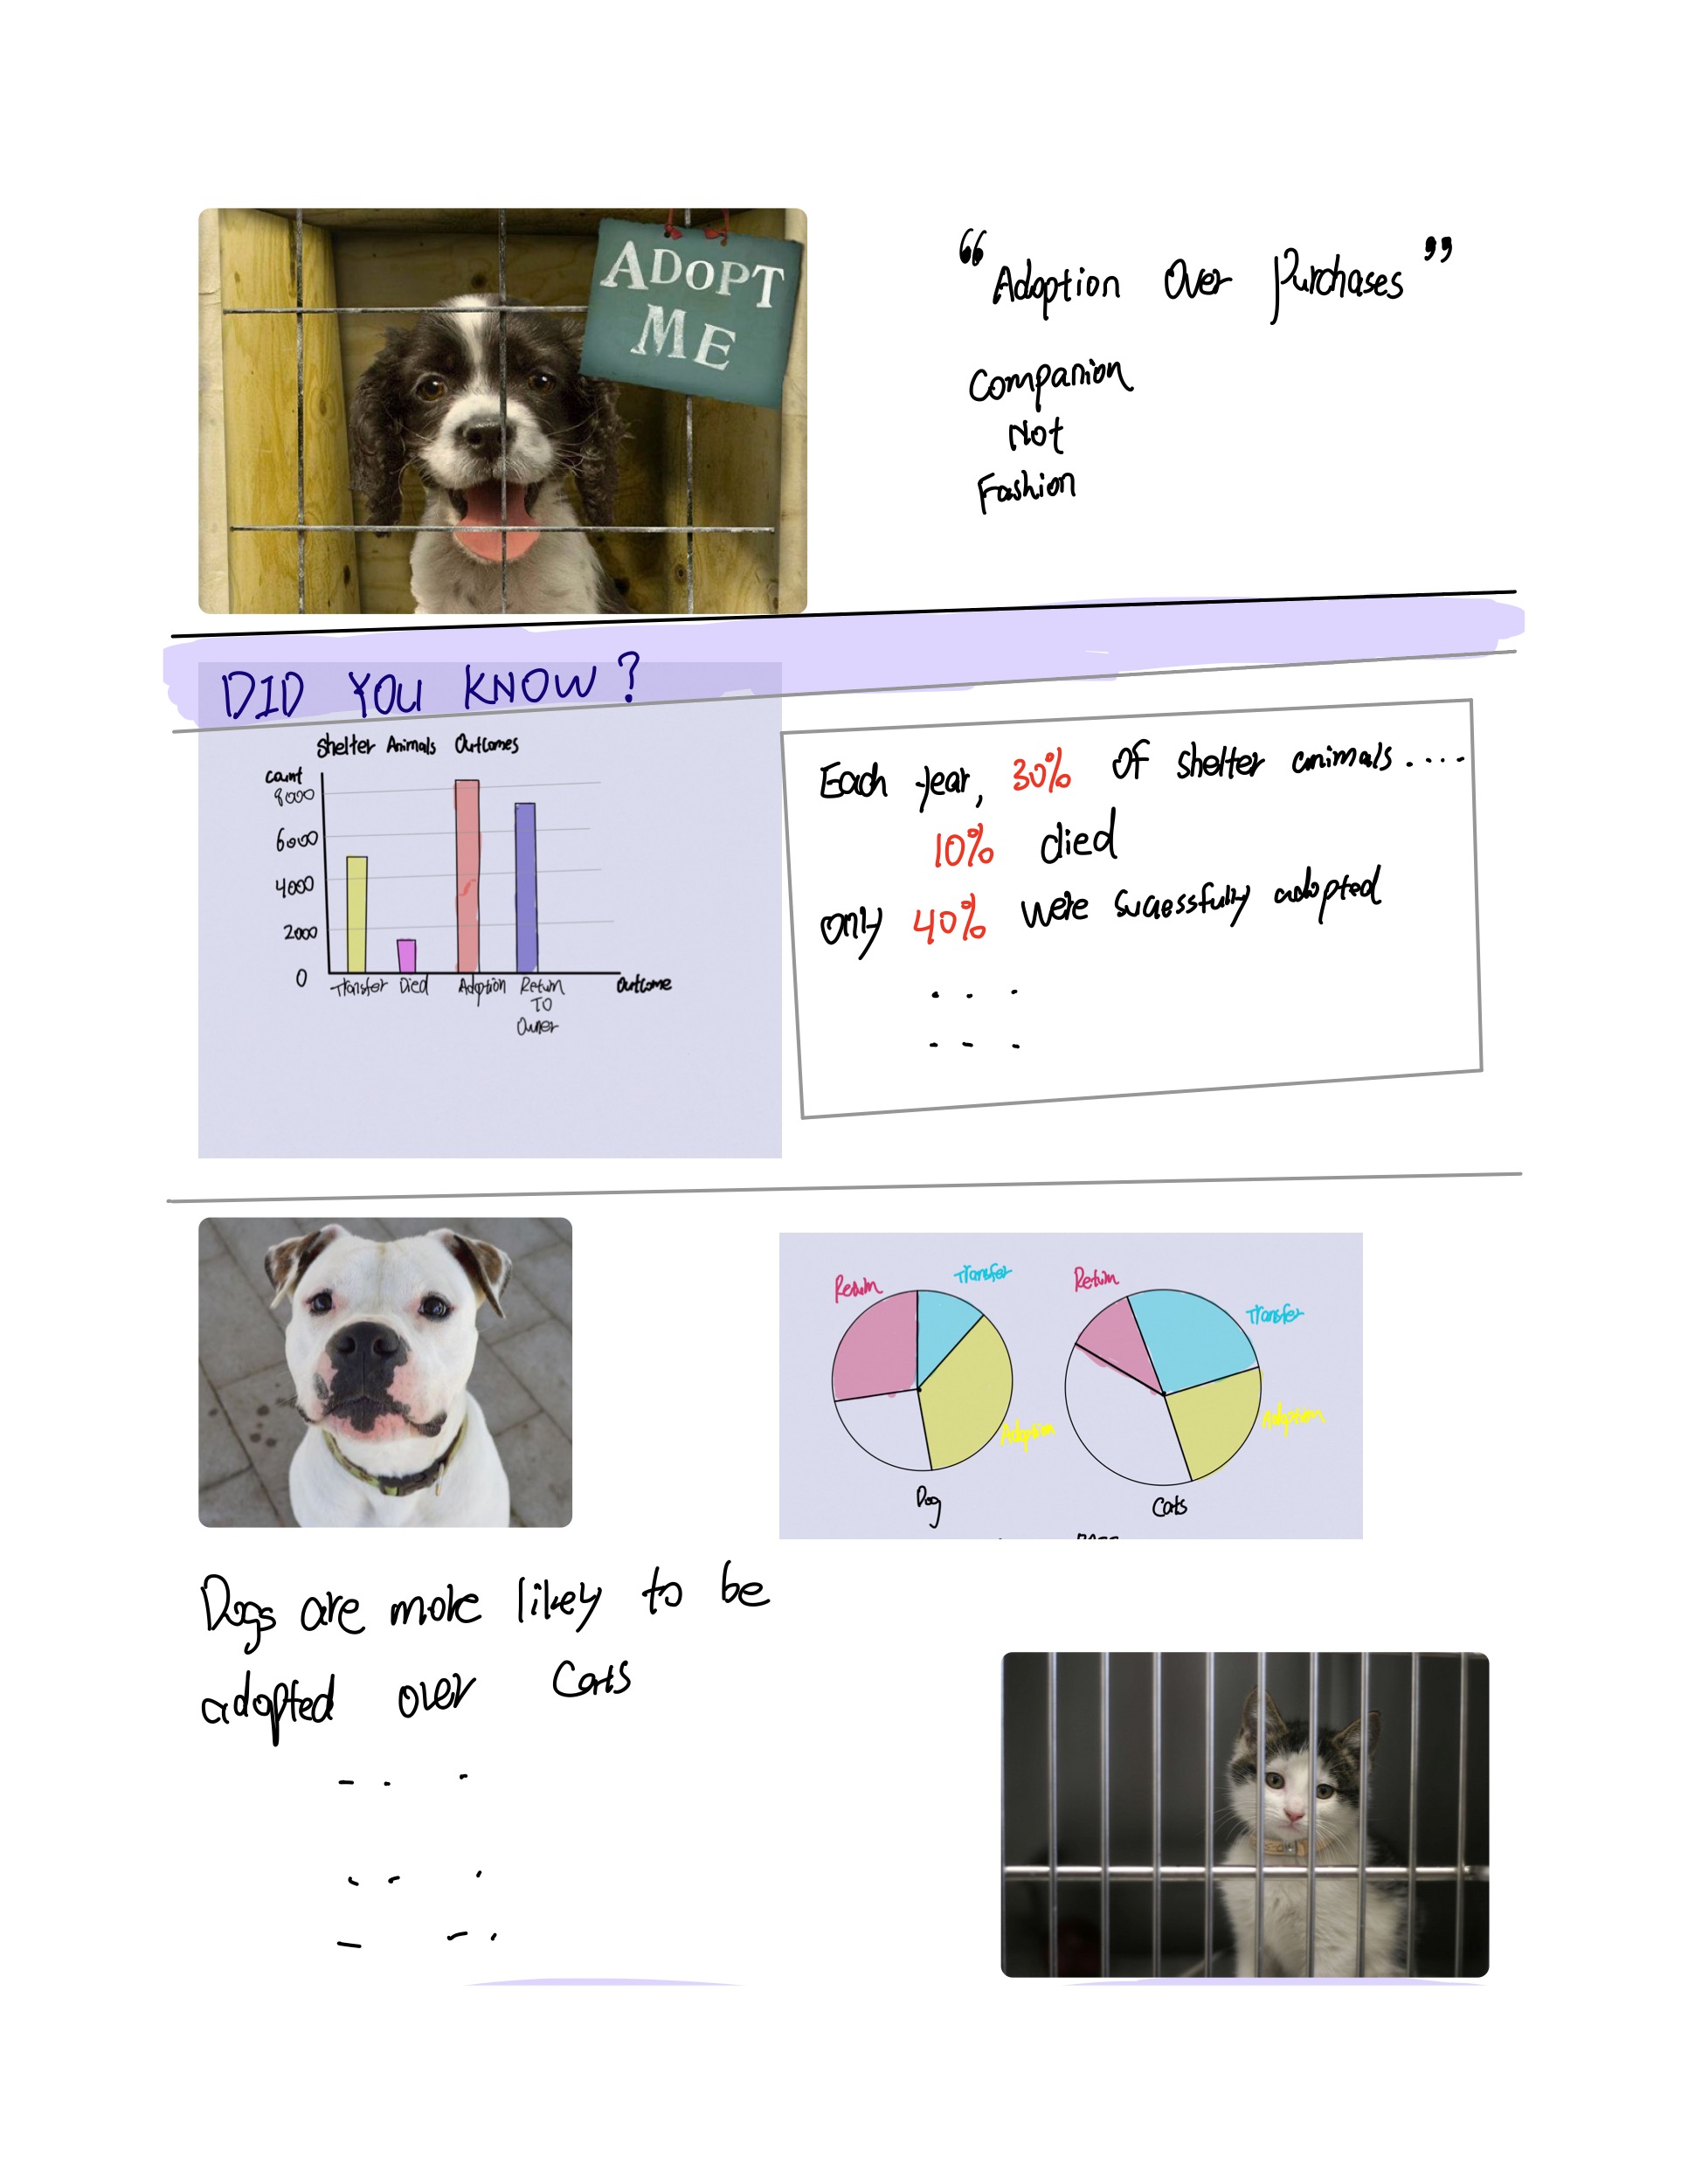 ADOPT
ME
“Adoption Over Purchases”
Companion
Not
Fashion
DID YOU KNOW?
Shelter Animals Outcomes
count
8000
6000
4000
2000
0
Transfer Died Adoption Return
TO
Owner
Outcome
Each year, 30% of shelter animals....
10% died
only 40% were sucessfully adopted
Return Transfer
Adoption
Dog
Return
Transfer
Adoption
Cats
Dogs are more likey to be
adopted over Cats